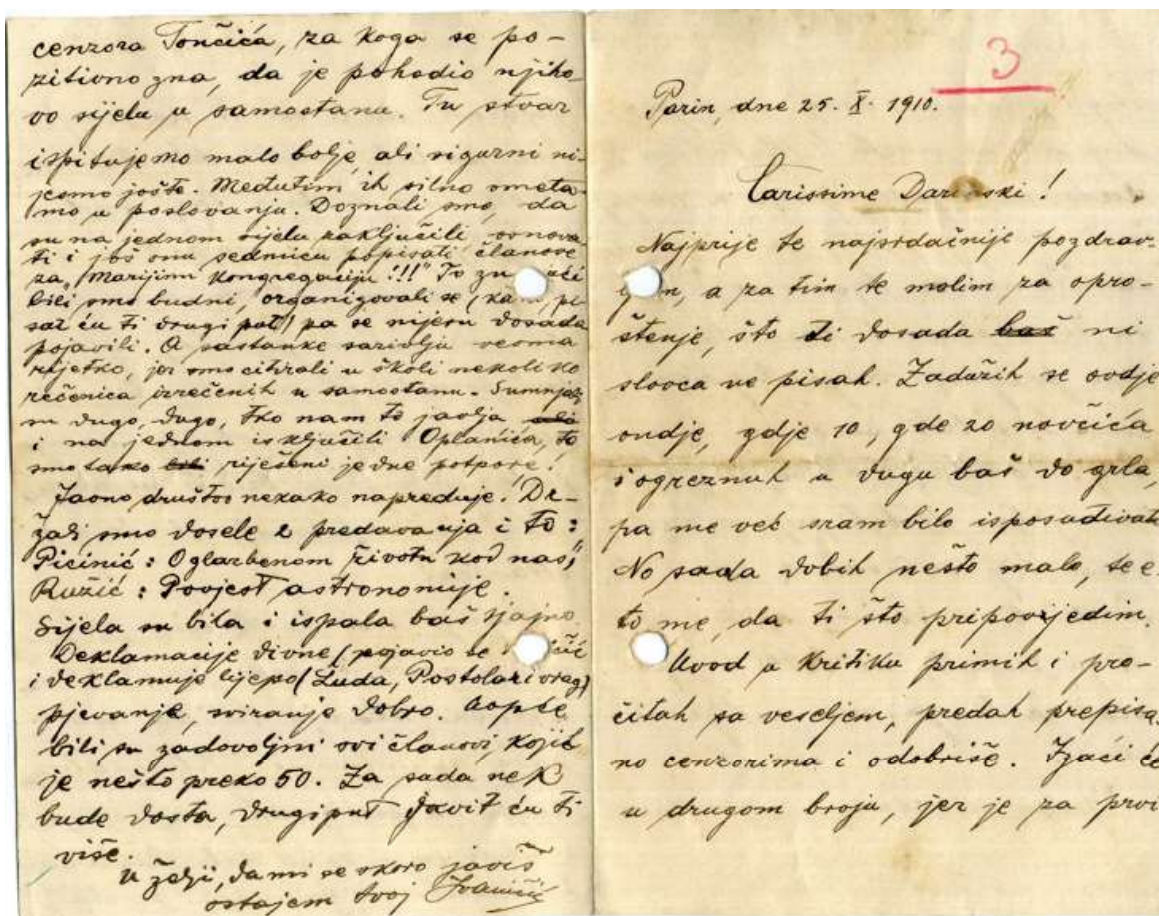 cenzora Tončića, za koga se po-
zitivno zna, da je pohodio njiho-
vo sijelo u samostanu. Tu stvar
ispitujemo malo bolje, ali sigurni ni-
jesmo jošte. Međutim ih silno smeta-
mo u poslovanju. Doznali smo, da
su na jednom sijelu zaključili osnova-
ti i još onu sedmicu popisati članove
za „Marijinu Kongregaciju!!!" To
bili smo budni, organizovali se (
sat ću ti drugi put) pa se nijesu dosada
pojavili. A sastanke sazivlju veoma
rijetko, jer smo citirali u školi nekoliko
rečenica izrečenih u samostanu. Sumnjas-
mo dugo, dugo, tko nam to javlja
i na jednom isključili Oplanića, to
smo tako riješeni jedne potpore!
Javno društvo nekako napreduje! Dr-
žali smo dosele 2 predavanja i to:
Pičinić: O glazbenom životu kod nas;
Ružić: Povjest astronomije.
Sijela su bila i ispala baš sjajno.
Deklamacije divne (pojavio se
i deklamuje lijepo (Luda, Postolar i vrag)
pjevanje, sviranje dobro. Uopće
bili su zadovoljni svi članovi, kojih
je nešto preko 50. Za sada nek
bude dosta, drugi put javit ću ti
više.
U želji, da mi se skoro javiš
ostajem tvoj
3
Pazin, dne 25. X. 1910.
Carissime Darinski!
Najprije te najsrdačnije pozdrav-
a za tim te molim za opro-
štenje, što ti dosada baš ni
slovca ne pisah. Zadužih se ovdje
ondje, gdje 10, gde 20 novčića
i ogreznuh u dugu baš do grla,
pa me već sram bilo isposuđivat
No sada dobih nešto malo, te e-
to me, da ti što pripovijedim.
Uvod u Kritiku primih i pro-
čitah sa veseljem, predah prepisa-
no cenzorima i odobriše. Izaći će
u drugom broju, jer je za prvi